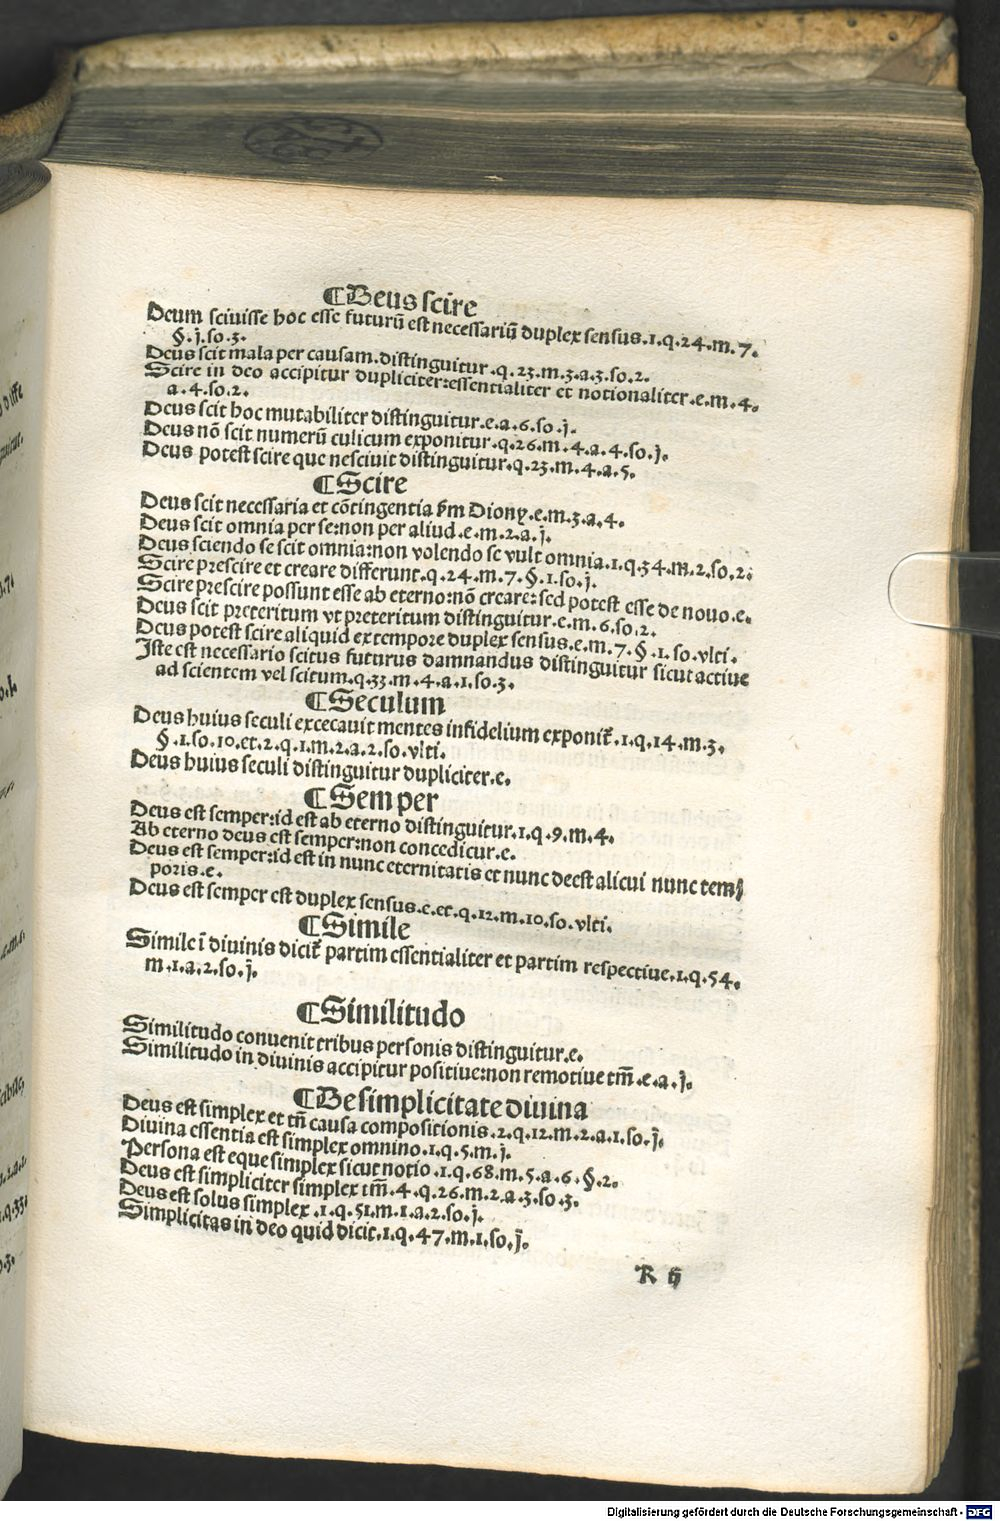 ¶Deus scire
Deum scivisse hoc esse futurū est necessariū duplex sensus.1.q.24.m.7.
§.j.so.3.
Deus scit mala per causam.distinguitur.q.23.m.3.a.3.so.2.
Scire in deo accipitur dupliciter:essentialiter et notionaliter.e.m.4.
a.4.so.2.
Deus scit hoc mutabiliter distinguitur.e.a.6.so.j.
Deus nō scit numerū culicum exponitur.q.26.m.4.a.4.so.j.
Deus potest scire que nescivit distinguitur.q.23.m.4.a.5.
¶Scire
Deus scit necessaria et cōtingentia ẜm Diony.e.m.3.a.4.
Deus scit omnia per se:non per aliud.e.m.2.a.j.
Deus sciendo se scit omnia:non volendo se vult omnia.1.q.34.m.2.so.2.
Scire prescire et creare differunt.q.24.m.7.§.1.so.j.
Scire prescire possunt esse ab eterno:nō creare:sed potest esse de nouo.e.
Deus scit preteritum vt preteritum distinguitur.e.m.6.so.2.
Deus potest scire aliquid ex tempore duplex sensus.e.m.7.§.1.so.vlti.
Iste est necessario scitus futurus damnandus distinguitur sicut actiue
ad scientem vel scitum.q.33.m.4.a.1.so.3.
¶Seculum
Deus huius seculi excecauit mentes infidelium exponit̃.1.q.14.m.3.
§.1.so.10.et.2.q.1.m.2.a.2.so.vlti.
Deus huius seculi distinguitur dupliciter.e.
¶Semper
Deus est semper:id est ab eterno distinguitur.1.q.9.m.4.
Ab eterno deus est semper:non conceditur.e.
Deus est semper:id est in nunc eternitatis et nunc deest alicui nunc tem⸗
poris.e.
Deus est semper est duplex sensus.e.et.q.12.m.10.so.vlti.
¶Simile
Simile ī diuinis dicit̃ partim essentialiter et partim respectiue.1.q.54.
m.1.a.2.so.j.
¶Similitudo
Similitudo conuenit tribus personis distinguitur.e.
Similitudo in diuinis accipitur positiue:non remotiue tm̄.e.a.j.
¶De simplicitate diuina
Deus est simplex et tn̄ causa compositionis.2.q.12.m.2.a.1.so.j.
Diuina essentia est simplex omnino.1.q.5.m.j.
Persona est eque simplex sicut notio.1.q.68.m.5.a.6.§.2.
Deus est simpliciter simplex tm̄.4.q.26.m.2.a.3.so.3.
Deus est solus simplex.1.q.51.m.1.a.2.so.j.
Simplicitas in deo quid dicit.1.q.47.m.1.so.j.
R
Digitalisierung gefördert durch die Deutsche Forschungsgemeinschaft - DFG